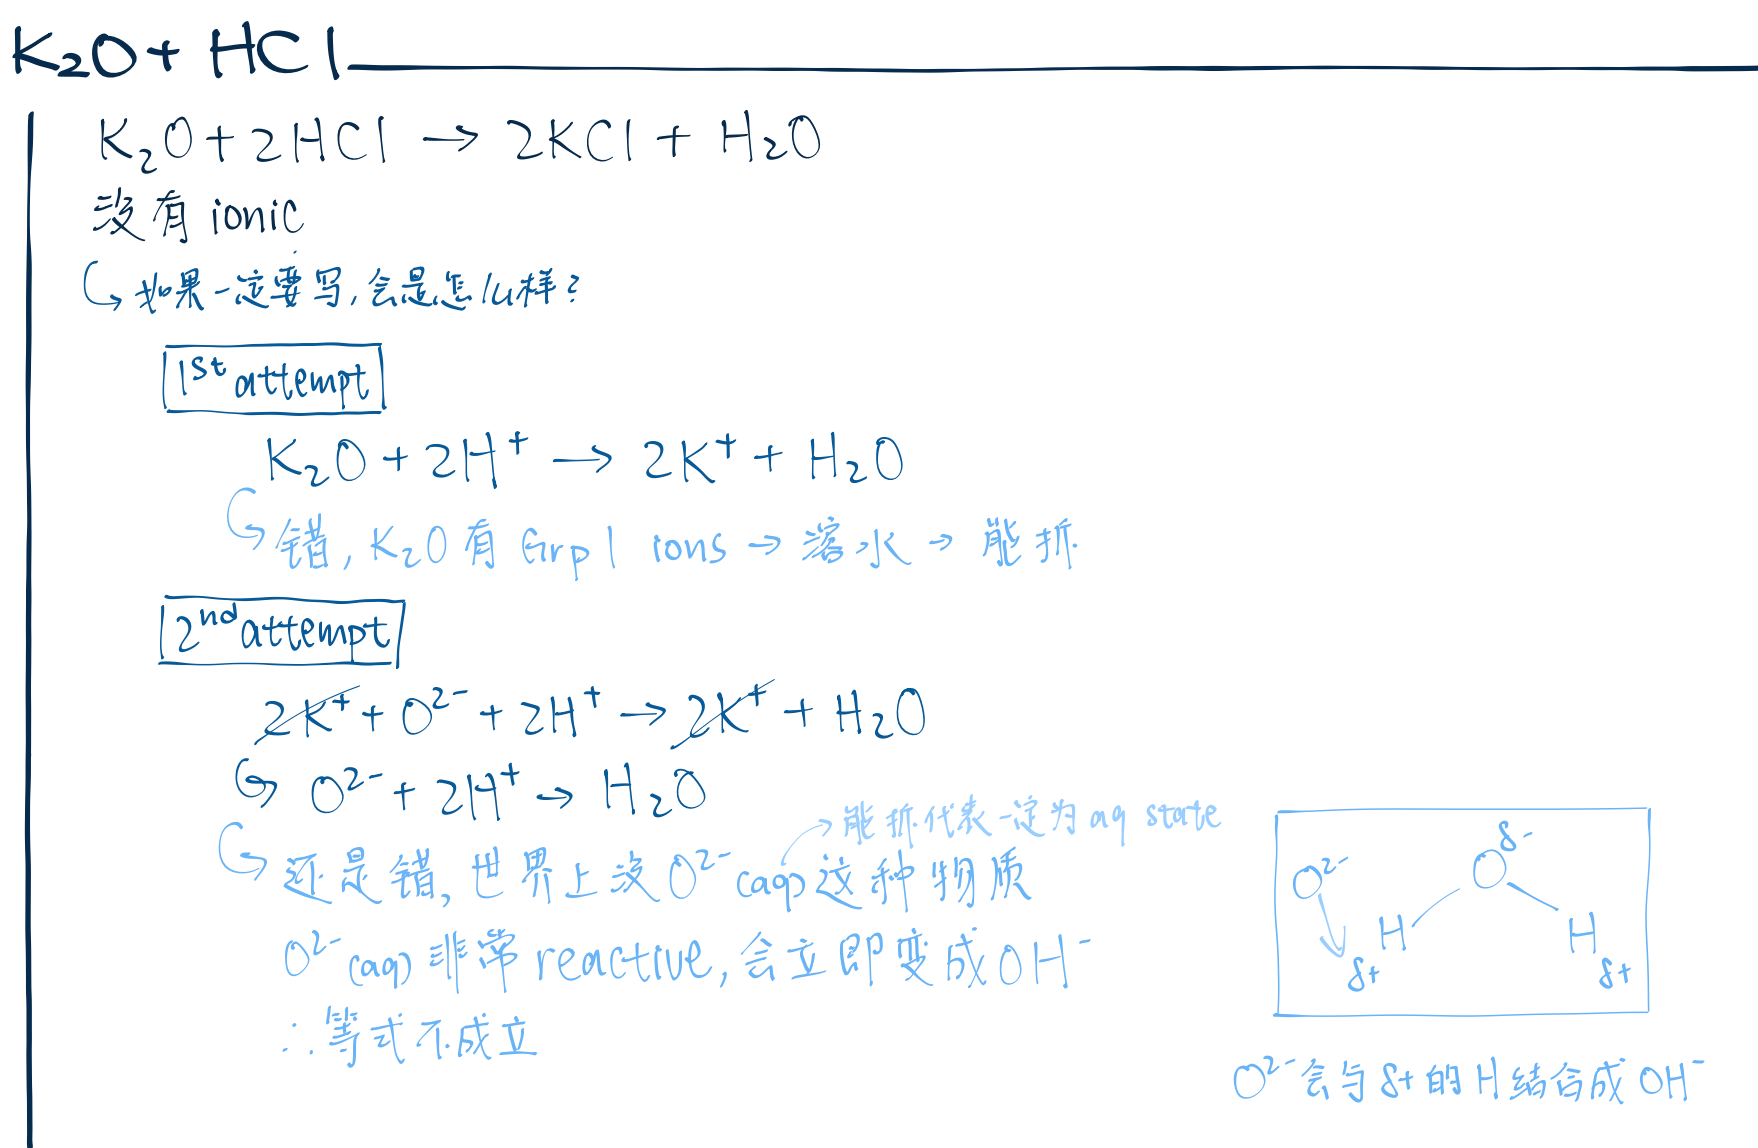 K₂O + HCl
K₂O + 2HCl → 2KCl + H₂O
没有 ionic
↳ 如果一定要写,会是怎么样?
1st attempt
K₂O + 2H⁺ → 2K⁺ + H₂O
↳ 错, K₂O 有 Grp 1 ions → 溶水 → 能拆
2nd attempt
2K⁺ + O²⁻ + 2H⁺ → 2K⁺ + H₂O
↳ O²⁻ + 2H⁺ → H₂O
→ 能拆代表一定为 aq state
↳ 还是错, 世界上没 O²⁻ (aq) 这种物质
O²⁻ (aq) 非常 reactive, 会立即变成 OH⁻
∴ 等式不成立
δ-
O²⁻ O
H H
δ+ δ+
O²⁻ 会与 δ+ 的 H 结合成 OH⁻